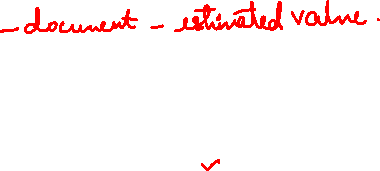 - document - estimated value.